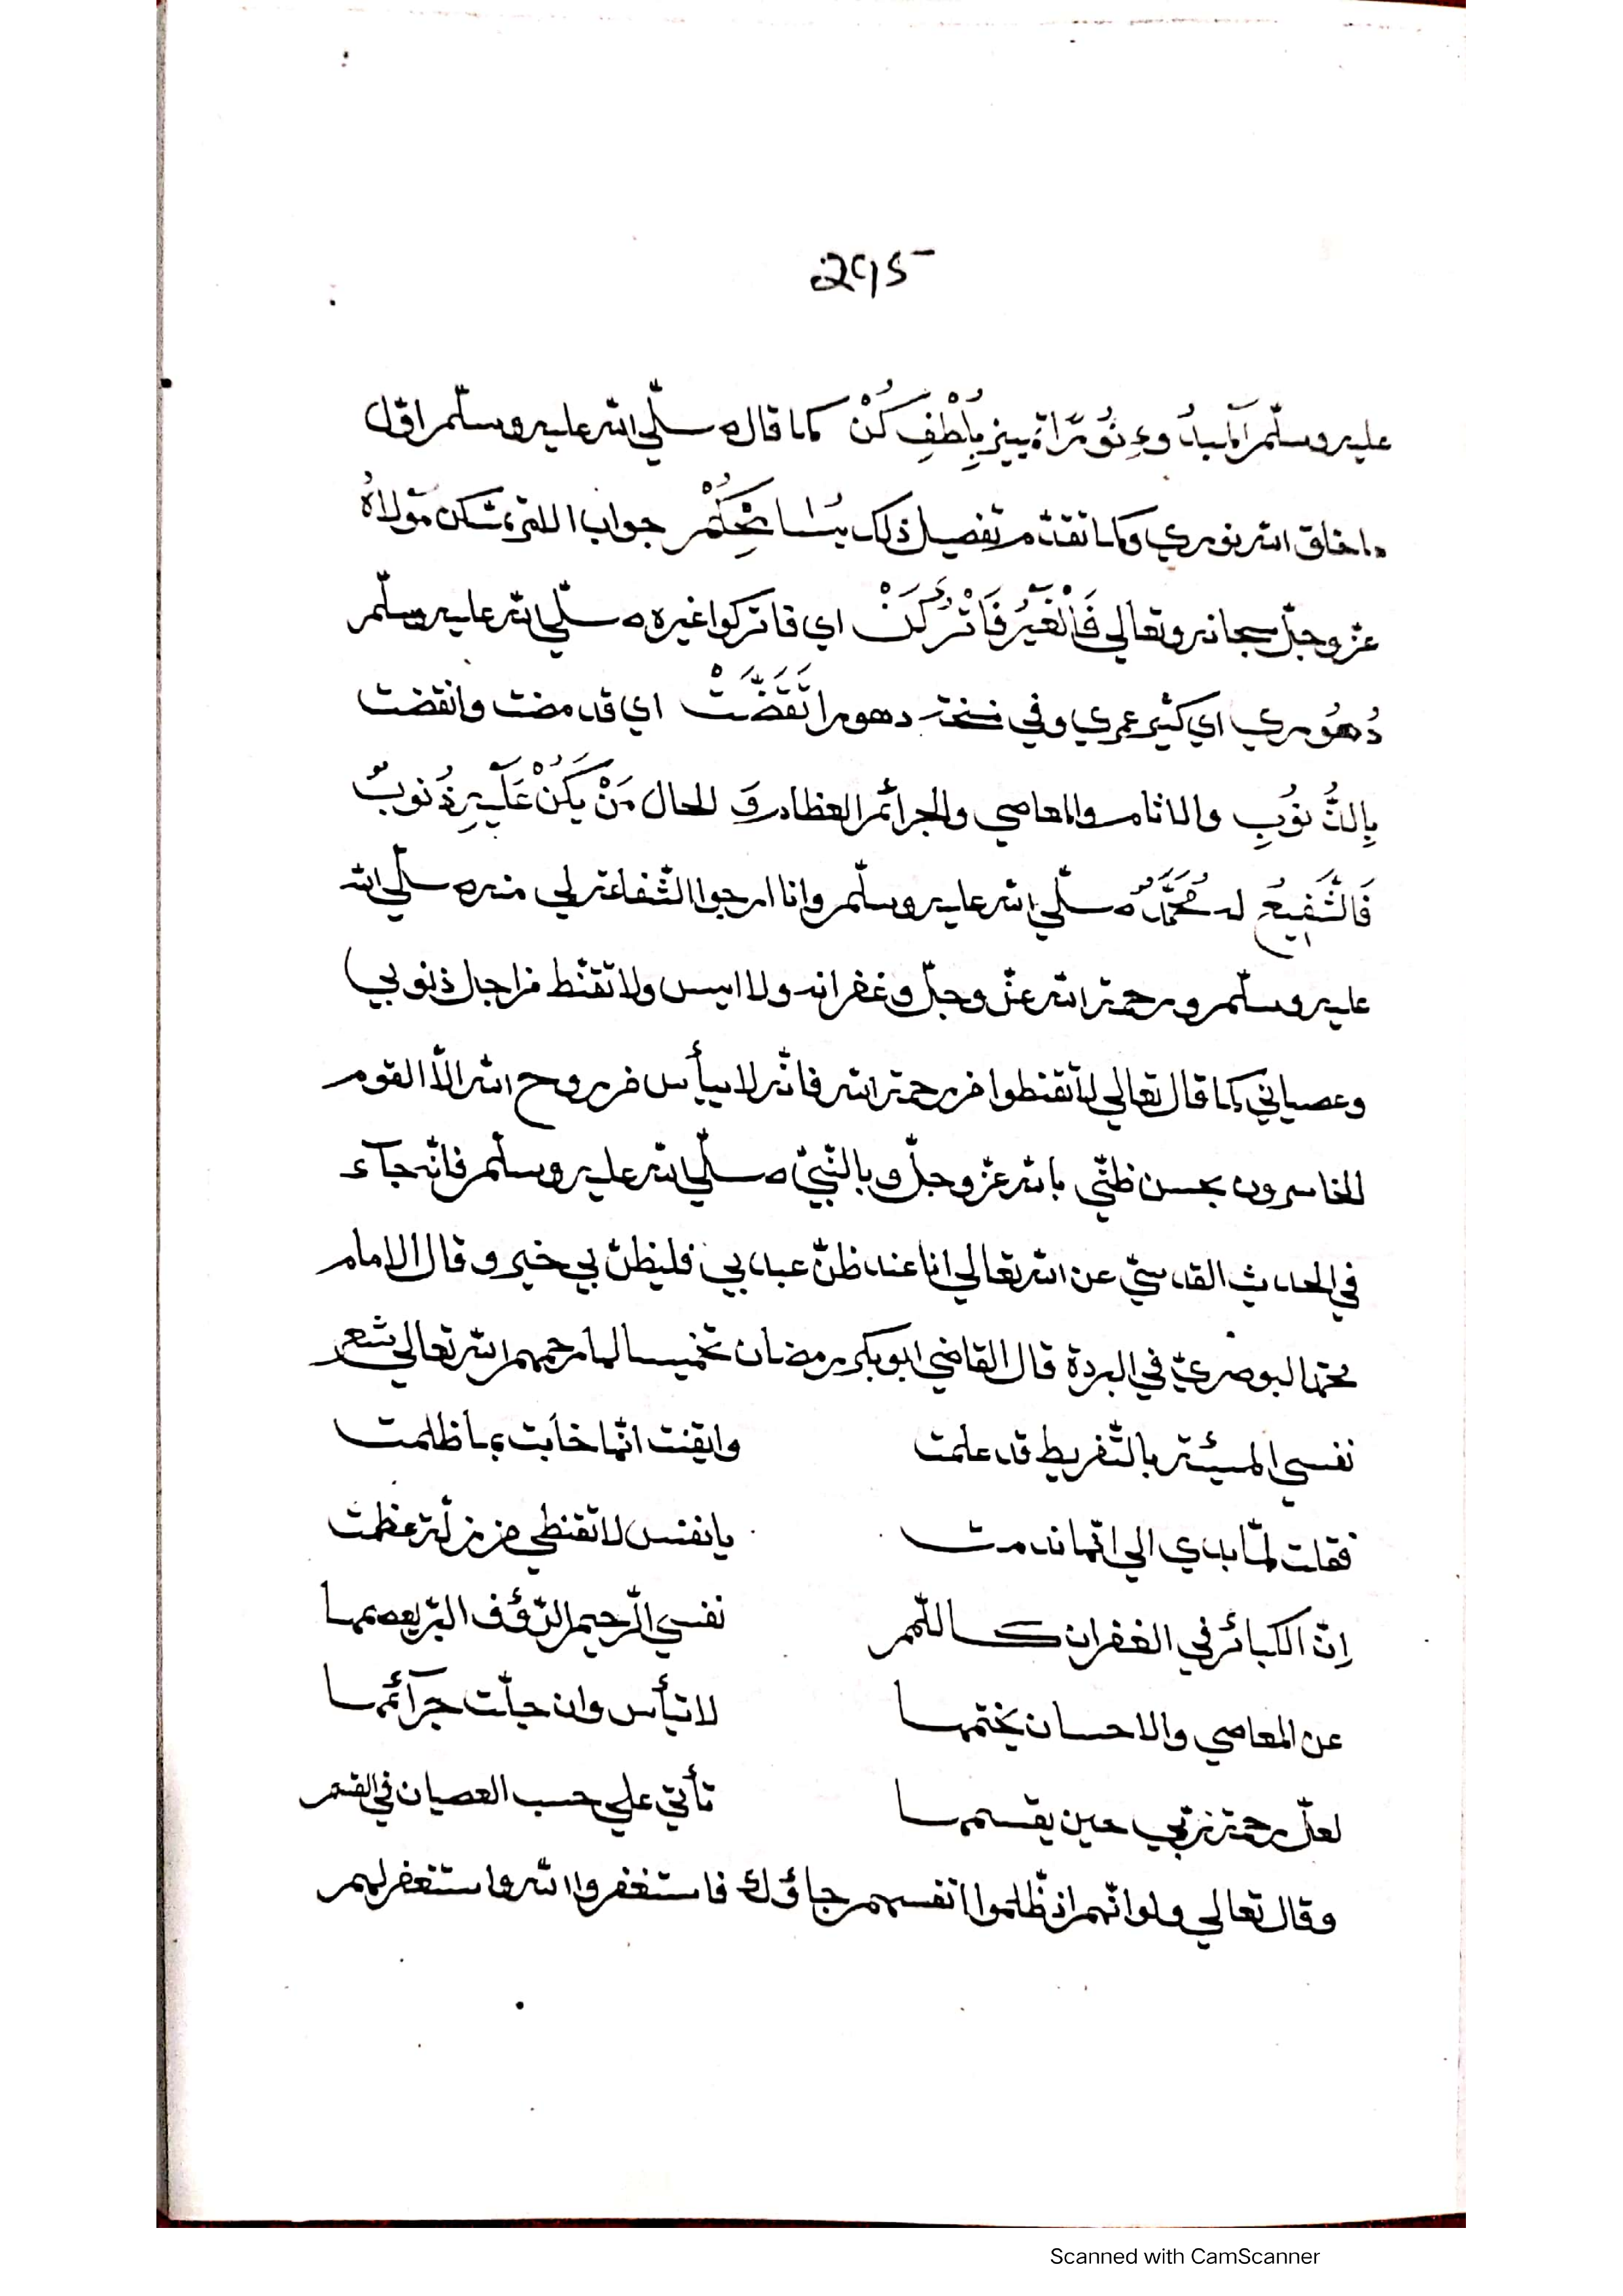 عليه وسلّم بِلُطْفِ كُنْ كما قال صلّي الله عليه وسلّم اوّل
ما خلق الله نوري وكما تقدّم تفصيل ذلك جواب مَوْلَاهُ
عزّ وجلّ سبحانه وتعالي فَالْغَيْرُ فَاتْرُكَنْ اي فاتركوا غيره صلّي الله عليه وسلّم
دُهُوري اي كثير عمري وفي نسخة دهورا تَقَضَّتْ اي قد مضت وانقضت
بِالذُّنُوبِ والاثام والمعاصي والجرائم العظام وَ الحال مَنْ يَكُنْ عَلَيْهِ ذُنُوبٌ
فَالشَّفِيعُ له مُحَمَّدٌ صلّي الله عليه وسلّم وانا ارجوا الشّفاعة لي منه صلّي الله
عليه وسلّم ورحمة الله عزّ وجلّ وغفرانه ولا ايس ولا تقنّط من اجل ذنوبي
وعصياني كما قال تعالي لا تقنطوا من رحمة الله فانّه لا ييأس من روح الله الّا القوم
الخاسرون بحسن ظنّي بالله عزّ وجلّ وبالنّبيّ صلّي الله عليه وسلّم فانّه جآء
في الحديث القدسيّ عن الله تعالي انا عند ظنّ عبدي بي فليظنّ بي خير وقال الامام
محمّد البوصريّ في البردة قال القاضي ابو بكر رمضان تخميسا لها رحمهم الله تعالي شعر
نفسي المسيئة بالتّفريط قد علمت وايقنت انّها خابت بما ظلمت
فقلت لمّا بدي الي انّها ندمت يا نفس لا تقنطي من زلّة عظمت
اِنّ الكبائر في الغفران كاللّمم نفسي الرّحيم الرّؤف البرّ يعصمها
عن المعاصي والاحسان يختمها لا تيأس وان جلّت جرآئمها
لعلّ رحمة ربّي حين يقسمها تأتي علي حسب العصيان في القسم
وقال تعالي ولو انّهم اذ ظّلموا انفسهم جاؤك فاستغفروا الله واستغفر لهم
Scanned with CamScanner